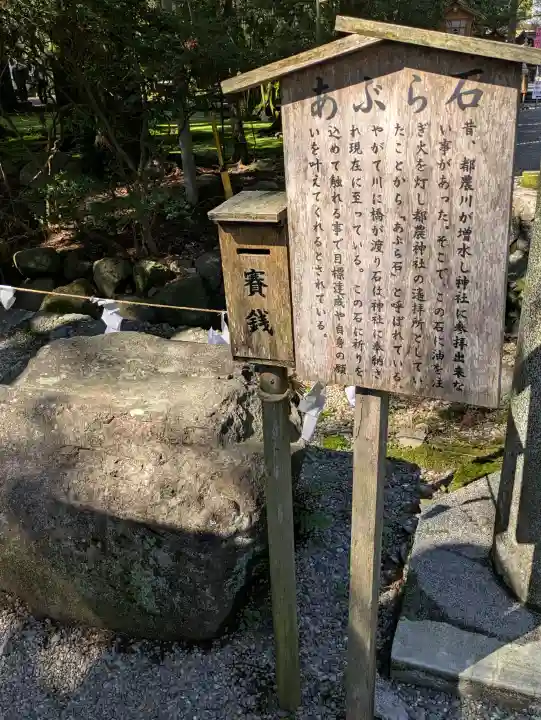 あぶら石
昔、都農川が増水し神社に参拝出来な
い事があった。そこで、この石に油を注
ぎ火を灯し都農神社の遥拝所としてい
たことから、「あぶら石」と呼ばれている。
やがて川に橋が渡り石は神社に奉納さ
れ現在に至っている。この石に祈りを
込めて触れる事で目標達成や自身の願
いを叶えてくれるとされている。
賽銭